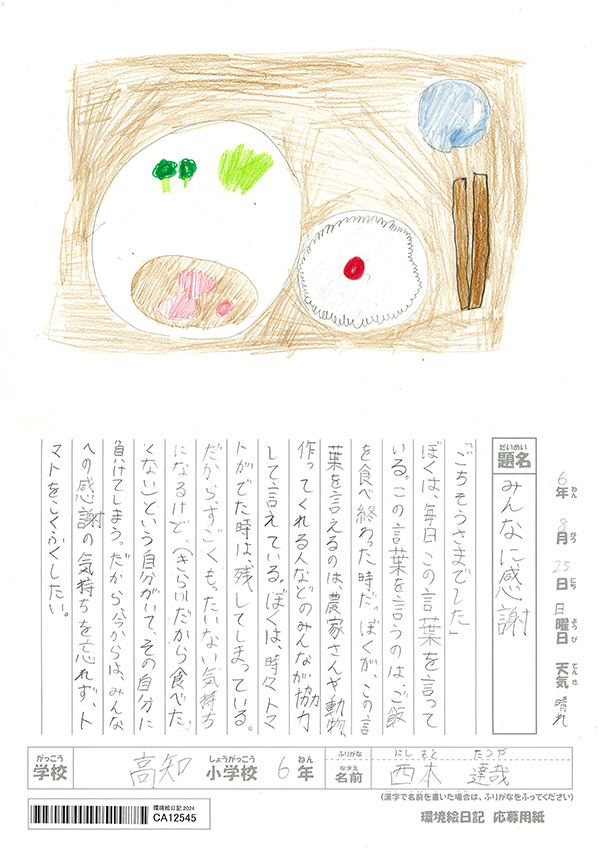 6年 8月 25日 日曜日 天気 晴れ
ねん がつ にち ようび てんき
だいめい
題名
みんなに感謝
「ごちそうさまでした」
ぼくは、毎日この言葉を言って
いる。この言葉を言うのは、ご飯
を食べ終わった時だ。ぼくが、この言
葉を言えるのは、農家さんや動物、
作ってくれる人などのみんなが協力
して言えている。ぼくは、時々トマ
トがでた時は、残してしまっている。
だから、すごくもったいない気持ち
になるけど、(きらい)だから食べた
くない)という自分がいて、その自分に
負けてしまう。だから、今からは、みんな
への感謝の気持ちを忘れず、ト
マトをこくふくしたい。
がっこう しょうがっこう ねん
学校 高知 小学校 6年
ふりがな にしもと たつや
なまえ
名前 西本 達哉
(漢字で名前を書いた場合は、ふりがなをふってください)
環境絵日記 2024
CA12545
環境絵日記 応募用紙